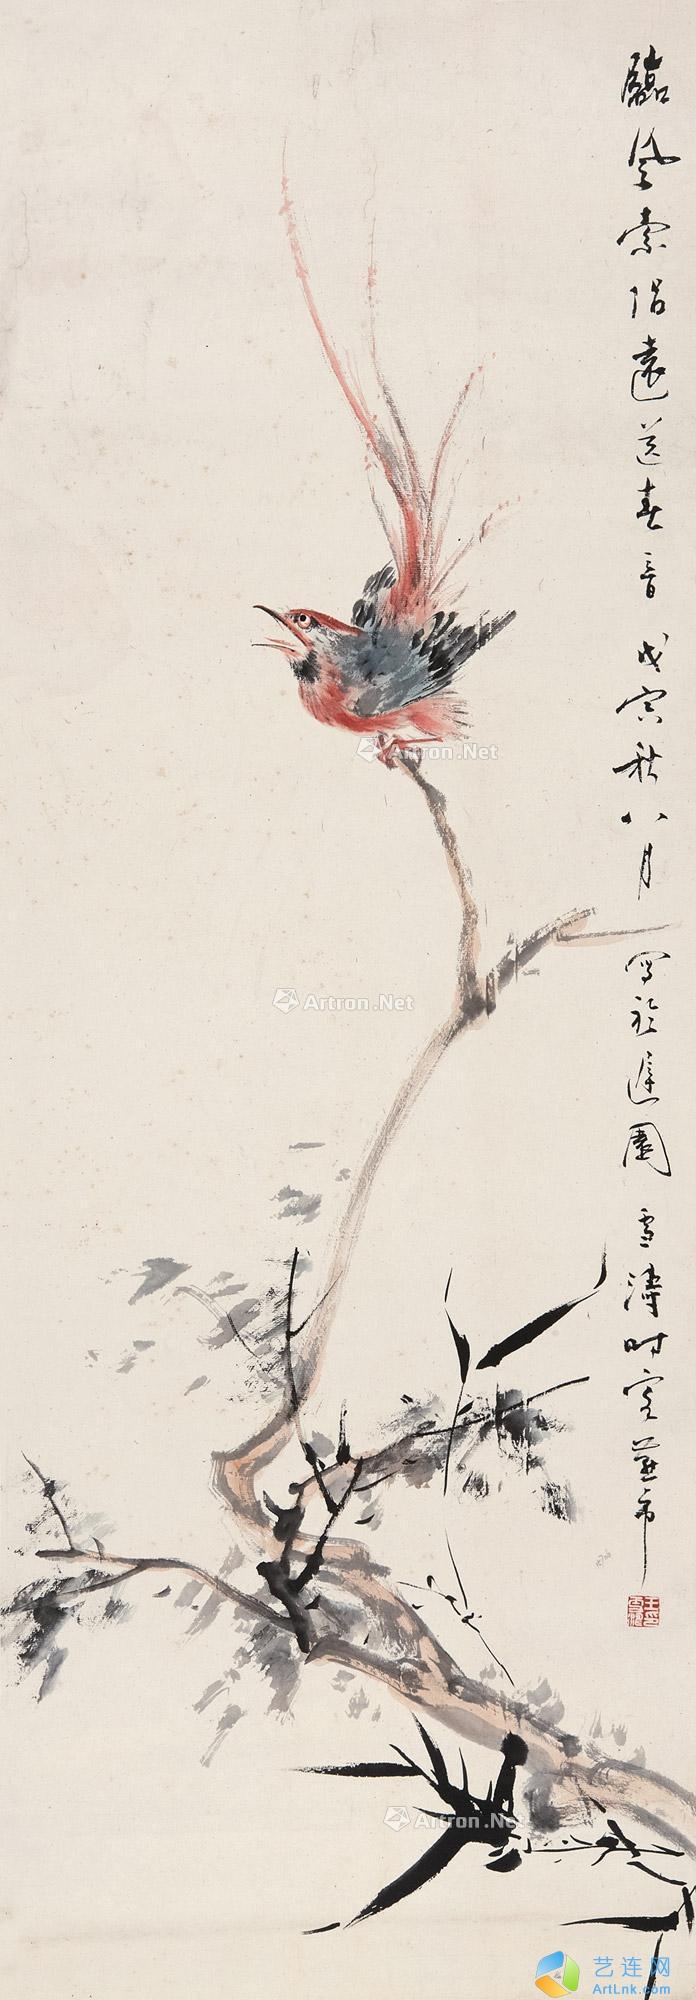 臨風索侣遠送春音 戊寅秋八月 写於遲園 雪濤時客燕市
Artron.Net
Artron.Net
Artron.Net
艺连网
ArtLnk.com